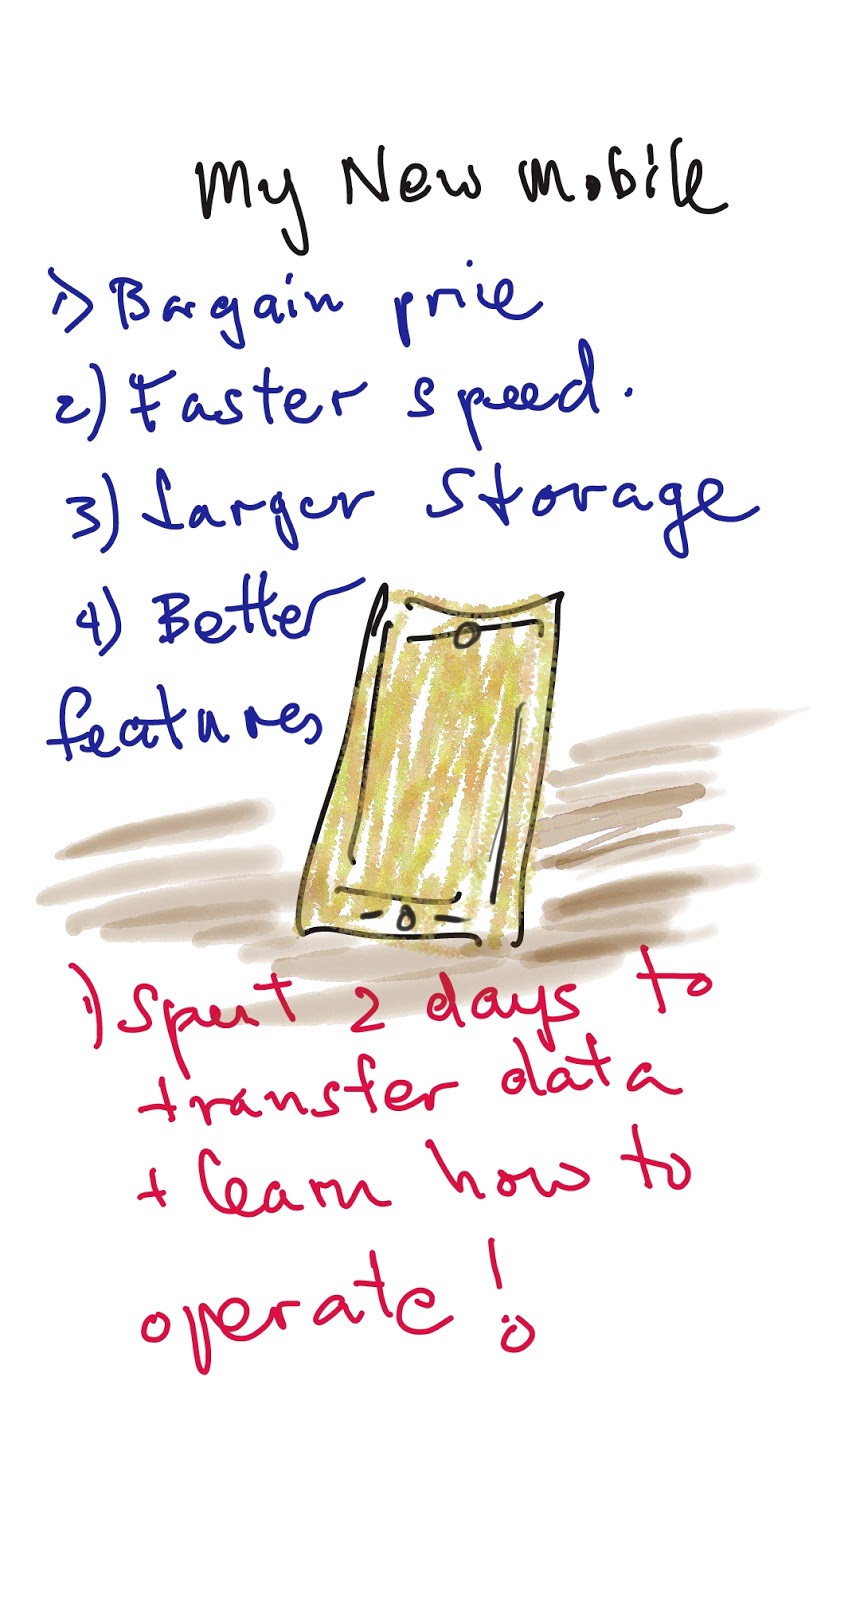 My New Mobile
1) Bargain price
2) Faster speed.
3) Larger Storage
4) Better
features
1) Spent 2 days to
transfer data
+ learn how to
operate!